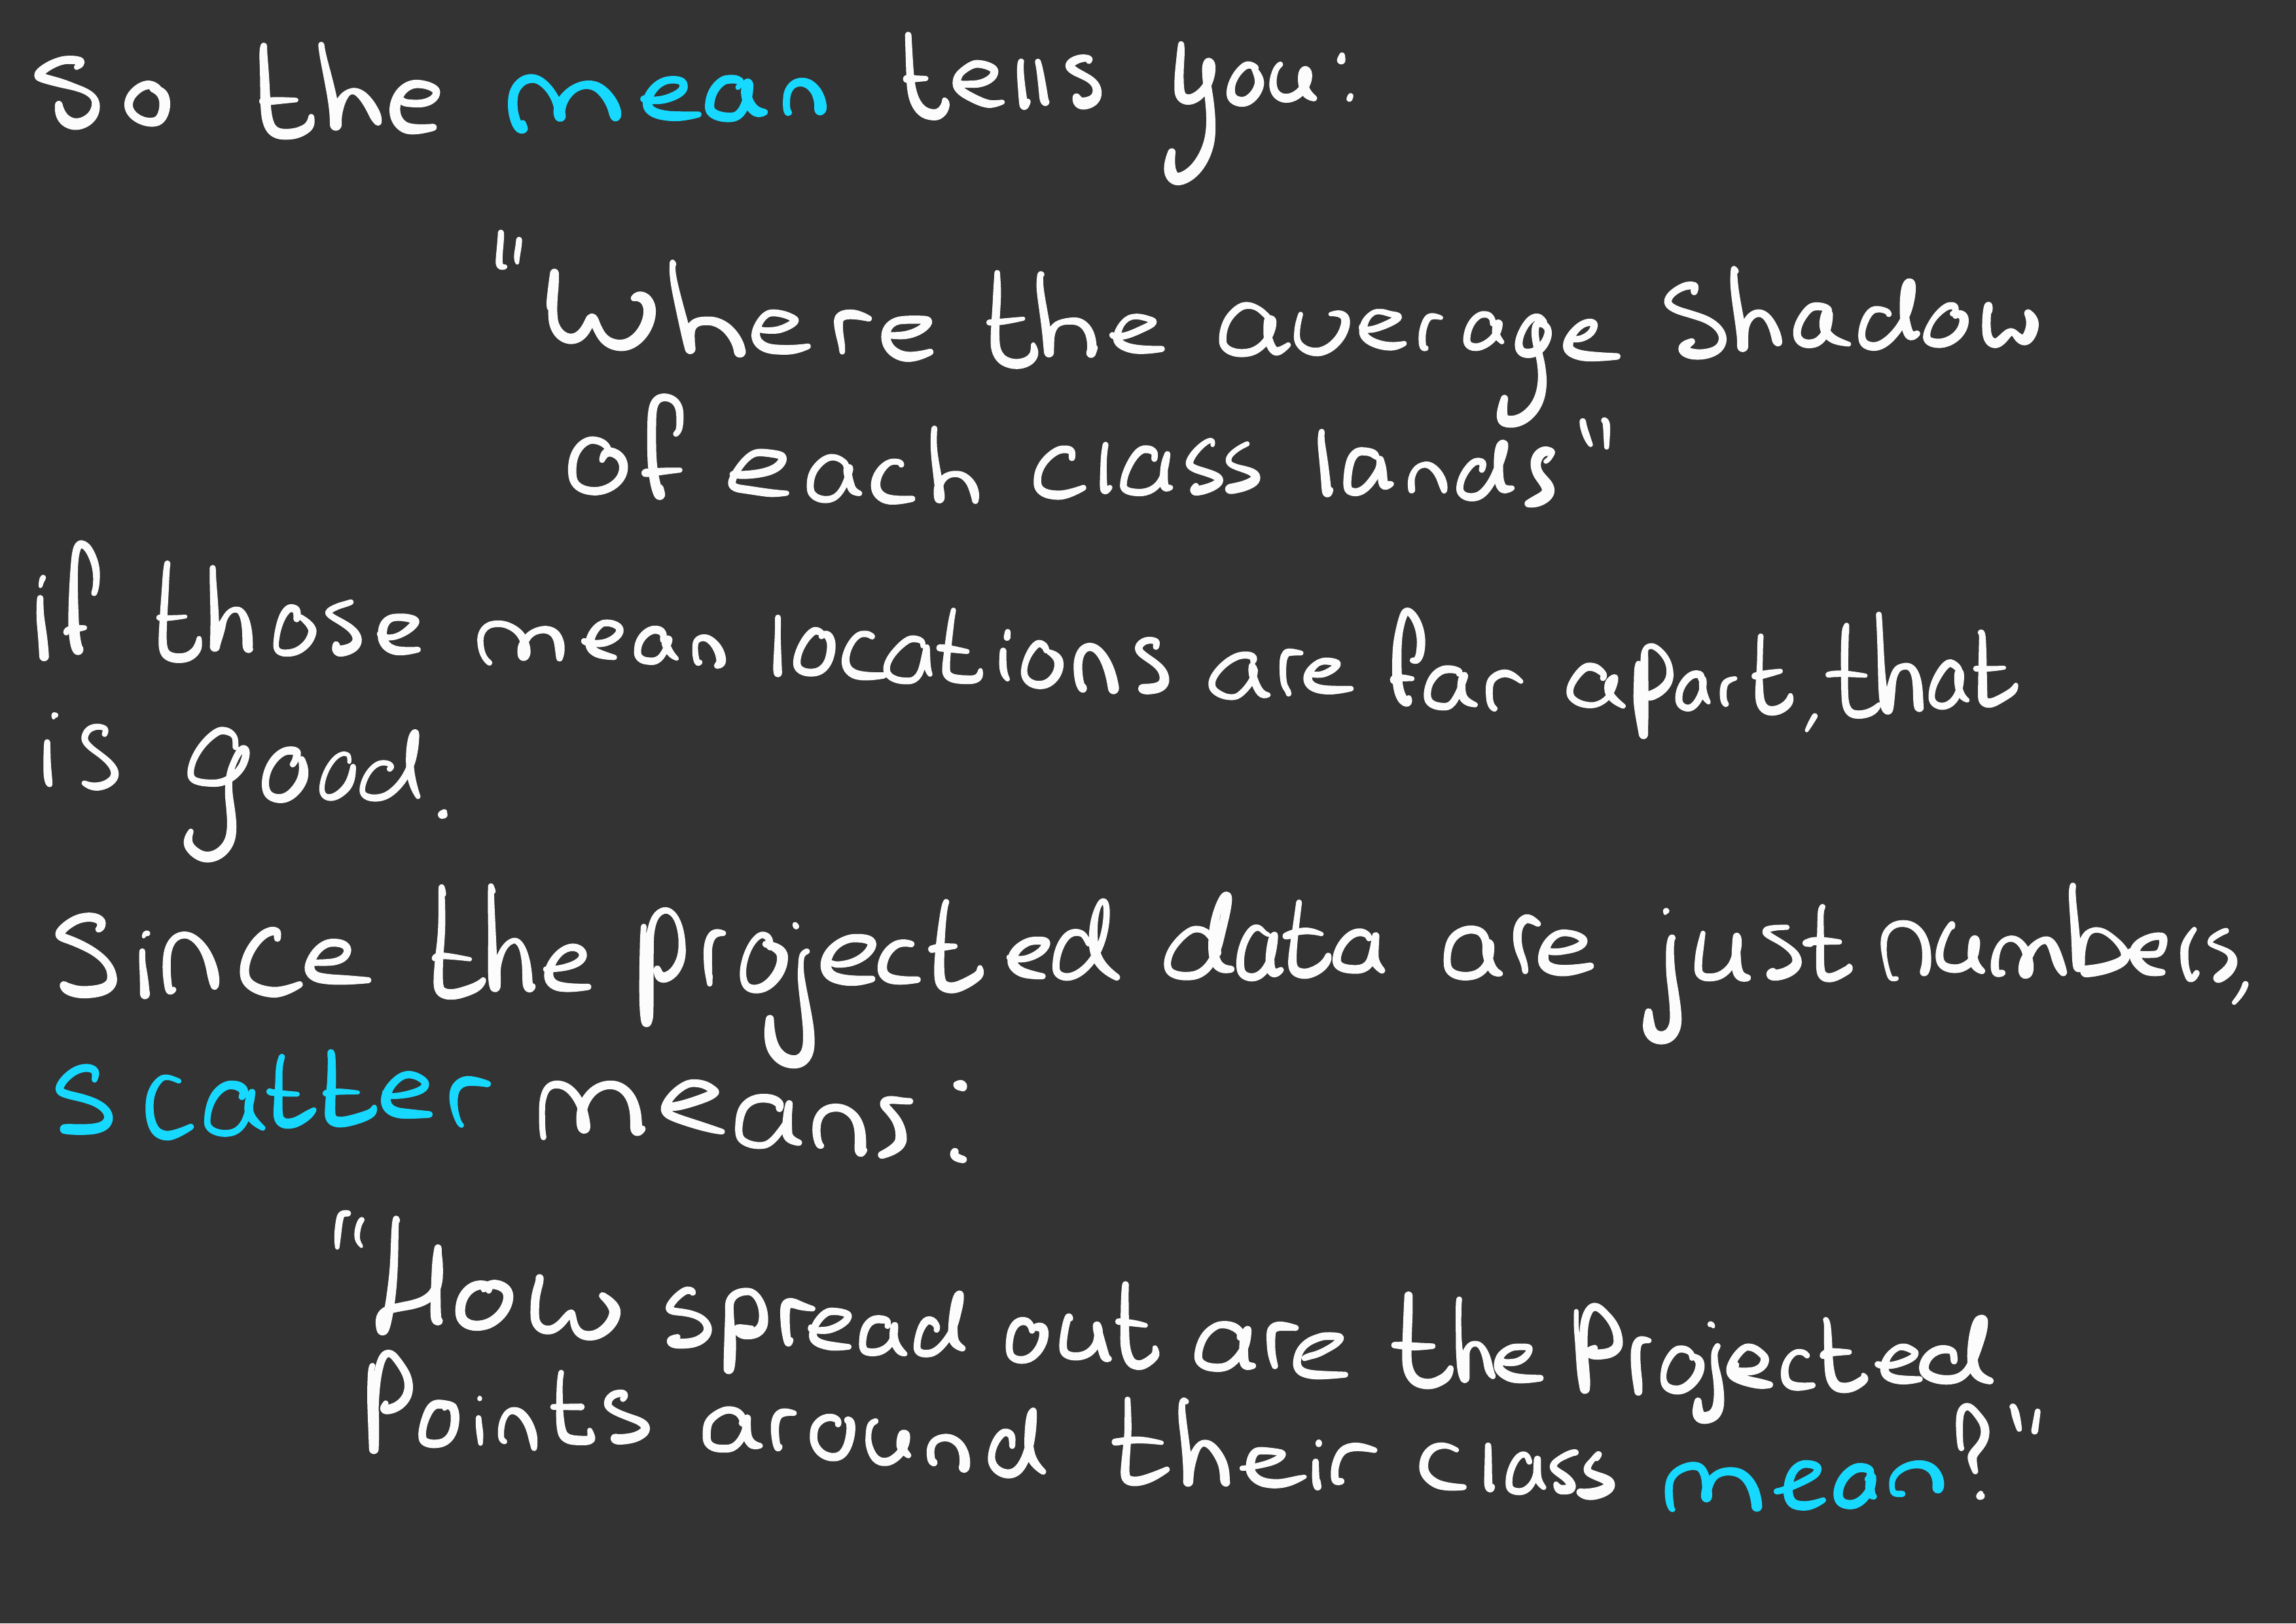 So the mean tells you:
"Where the average shadow
of each class lands"
if those mean locations are far apart, that
is good.
Since the projected data are just numbers,
scatter means:
"How spread out are the Projected
Points around their class mean?"